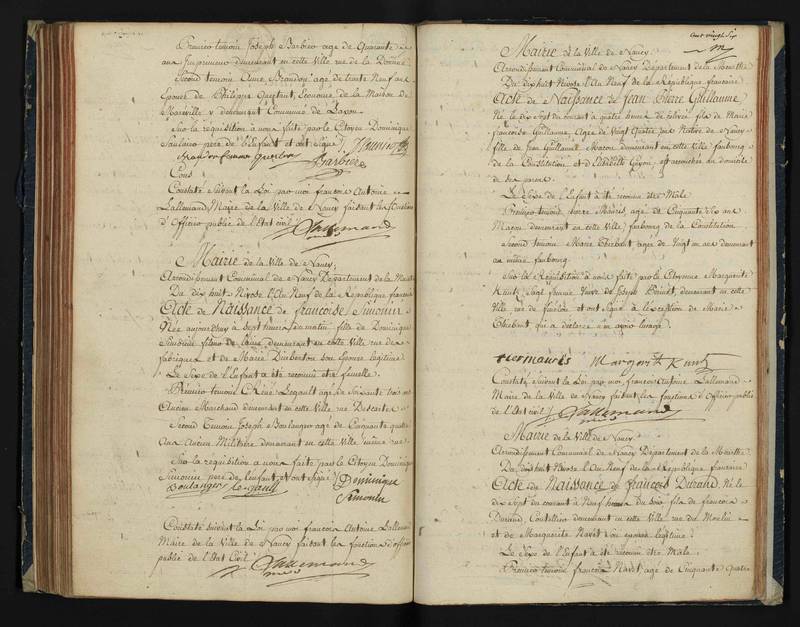 Premier temoin Joseph Barbier agé de Quarante
ans Imprimeur demeurant en cette ville rue de la
Second temoin Anne Brandon agée de trente Neuf ans
Epouse de Philippe Œconome de la Maison de
Mareville y demeurant Commune de Laxou
Sur la requisition a nous faite par le Citoyen Dominique
pere de l'Enfant et ont signé
Barbier
Constaté suivant la Loi par moi françois Antoine
Lallemand Maire de la Ville de Nancy faisant les fonctions
d'Officier public de l'Etat civil
Lallemand
Mairie de la Ville de Nancy
Arrondissement Communal de Nancy Département de la Meurthe
Du dix huit Nivose l'An Neuf de la Republique française
Acte de Naissance de françoise Simonin
Née aujourdhuy a sept heures du matin fille de Dominique
Simonin fileur de laine demeurant en cette Ville rue des
fabriques et de Marie son Epouse légitime
Le Sexe de l'Enfant a été reconnu etre femelle
Premier temoin René Legault agé de Soixante trois ans
Ancien Marchand demeurant en cette Ville rue Descartes
Second Temoin Joseph Boulanger agé de Cinquante quatre
Ans Ancien Militaire demeurant en cette Ville même rue
Sur la requisition a nous faite par le Citoyen Dominique
Simonin pere de l'enfant et ont signé Dominique
Boulanger Legault Simonin
Constaté suivant la Loi par moi francois Antoine Lallemand
Maire de la Ville de Nancy faisant les fonctions d'officier
public de l'Etat Civil
Lallemand
Cent vingt Six
Mairie de la Ville de Nancy
Arrondissement Communal de Nancy Département de la Meurthe
Du dix huit Nivose l'An Neuf de la République française
Acte de Naissance de Jean Pierre Guillaume
Né le dix sept du courant a quatre heures de relevée fils de Marie
françoise Guillaume Agée de Vingt Quatre ans Native de Nancy
fille de Jean Guillaume Macon demeurant en cette ville faubourg
de la Constitution et d'Elisabeth accouchée au domicile
de ses pere
Le Sexe de l'Enfant a été reconnu etre Male
Premier temoin Pierre Mauris agé de Cinquante Six ans
Macon demeurant en cette ville faubourg de la Constitution
Second temoin Marie Thiebaut agée de Vingt un ans demeurant
au même faubourg
Sur la Requisition a nous faite par la Citoyenne Marguerite
Kuntz Sage femme Veuve de Joseph demeurant en cette
Ville rue de et ont signé a l'exception de Marie
Thiebaut qui a déclaré n'en avoir l'usage
Piermauris Margoritt Kuntz
Constaté suivant la Loi par moi francois Antoine Lallemand
Maire de la Ville de Nancy faisant les fonctions d'Officier public
de l'Etat civil
Lallemand
Mairie de la Ville de Nancy
Arrondissement Communal de Nancy Département de la Meurthe
Du dix huit Nivose l'An Neuf de la Republique francaise
Acte de Naissance de francois Durand Né le
dix Sept du courant a Neuf heures du soir fils de francois
Durand, Coutellier demeurant en cette Ville rue du Moulin
et de Marguerite Navet son epouse légitime
Le Sexe de l'Enfant a été reconnu etre Male
Premier temoin françois Navet agé de Cinquante Quatre